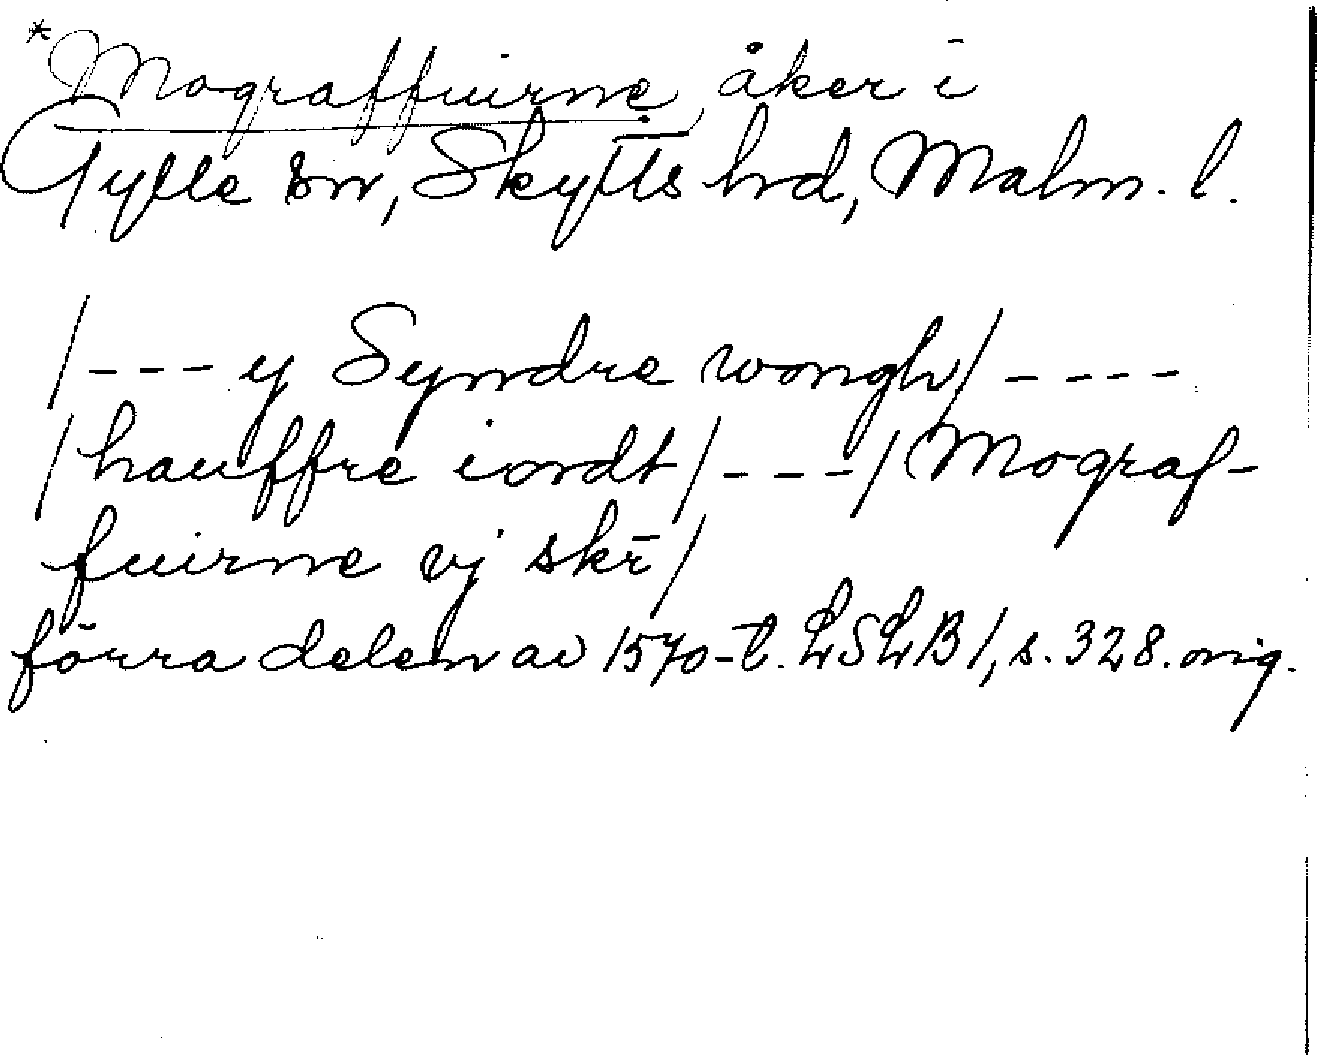 *Mograffuirne, åker i
Gylle sn, Skytts hd, Malm. l.
/---y Syndre wongh/----
/hauffre iordt/---/Mograf-
fuirne vj skr̄/
förra delen av 1570-t. LSLB 1, s. 328. orig.